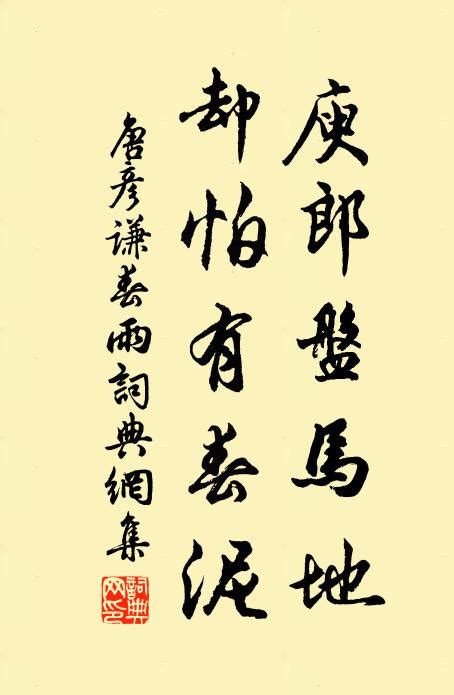 庾郎盤馬地
却怕有春泥
唐彦謙春雨詞典網集
詞典網印